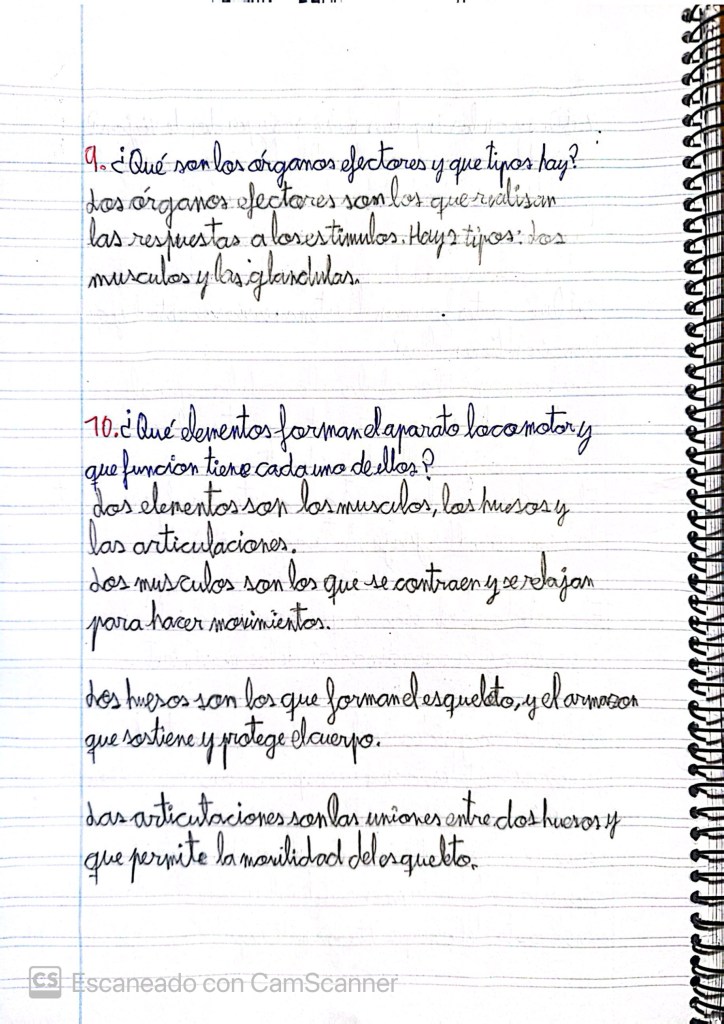 9. ¿Qué son los órganos efectores y que tipos hay?
Los órganos efectores son los que realisan
las respuestas a los estimulos. Hay 2 tipos: Los
musculos y las glandulas.
10. ¿Qué elementos forman el aparato locomotor y
que funcion tiene cada uno de ellos?
Los elementos son los musculos, los huesos y
las articulaciones.
Los musculos son los que se contraen y se relajan
para hacer movimientos.
Los huesos son los que forman el esqueleto, y el armazon
que sostiene y protege el cuerpo.
Las articulaciones son las uniones entre dos huesos y
que permite la movilidad del esqueleto.
CS Escaneado con CamScanner